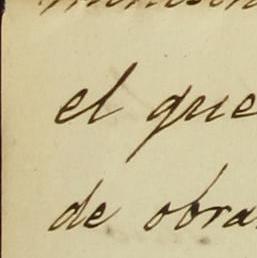 el que
de obra